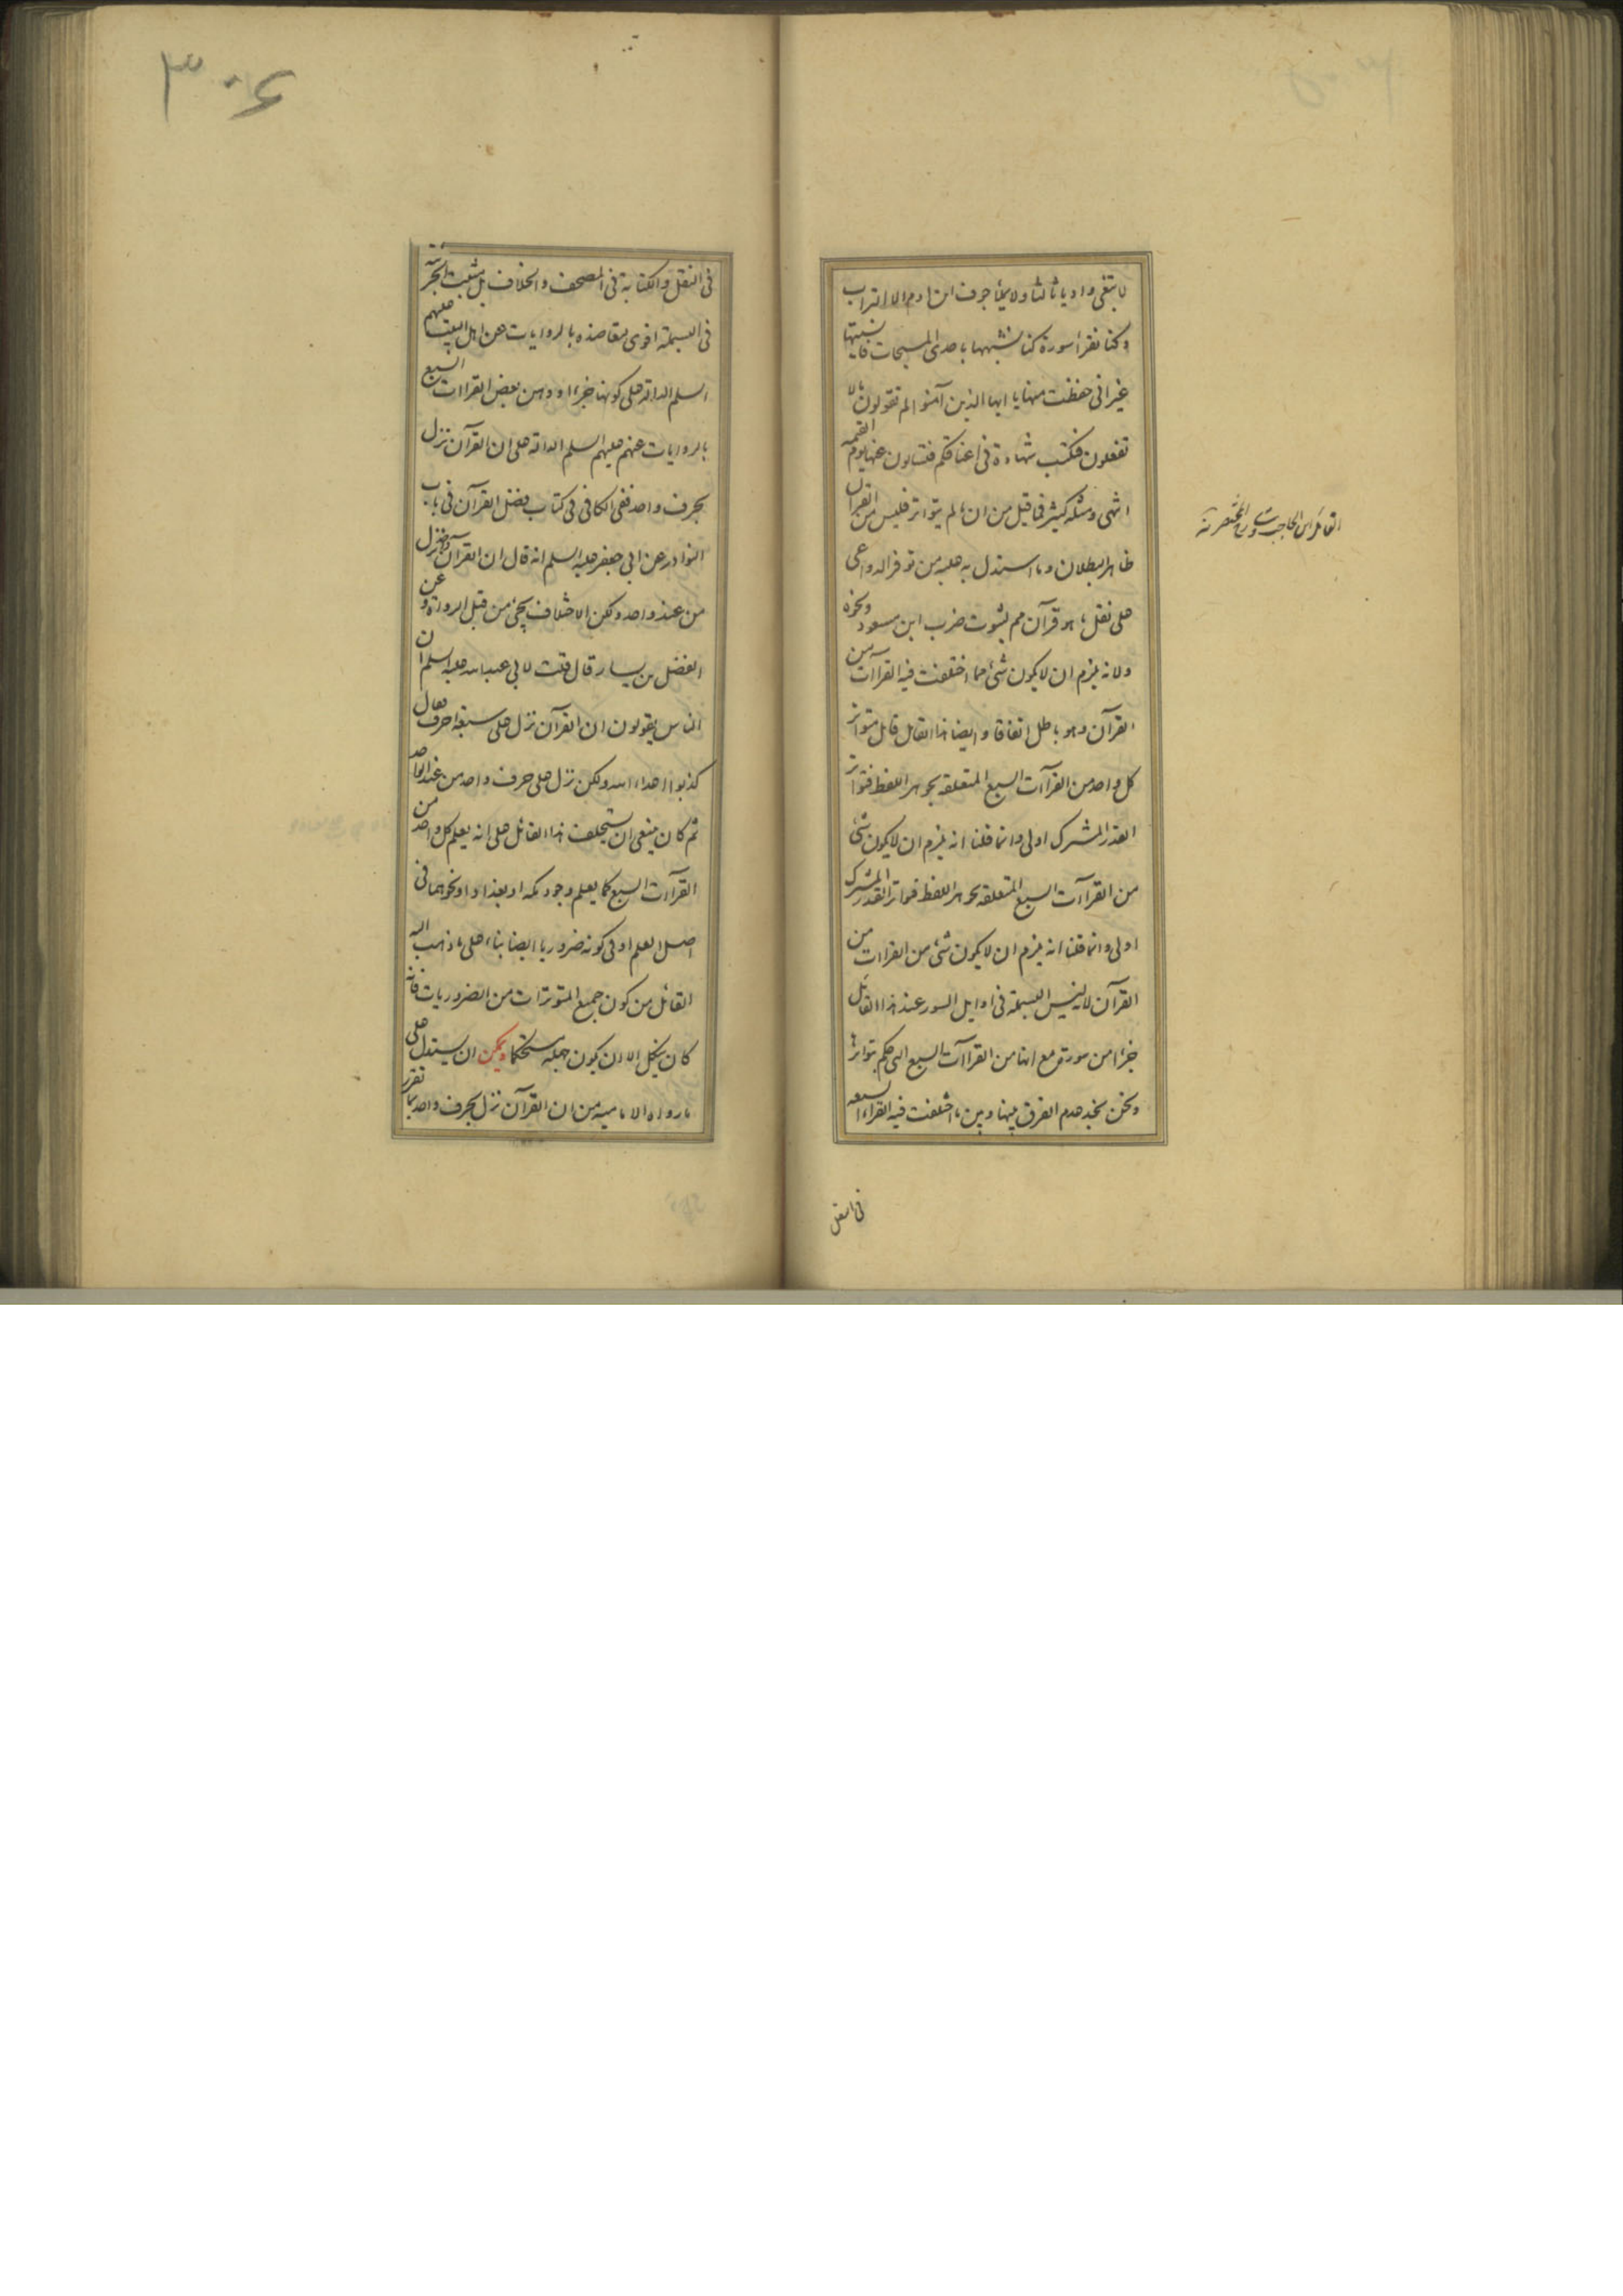 لابتغى واديا ثالثا ولا يملأ جوف ابن ادم الا التراب
وكنا نقرا سورة كنا نشبهها باحدى المسبحات فانسيتها
غير انى حفظت منها يا ايها الذين آمنوا لم تقولون ما لا
تفعلون فتكتب شهادة فى اعناقكم فتسالون عنها يوم القيمة
انتهى ومثله كثير فما قيل من ان ما لم يتواتر فليس من القرآن
ظاهر البطلان وما استدل به عليه من توفر الدواعى
على نقل ما هو قرآن مم لثبوت ضرب ابن مسعود ونحوه
ولانه يلزم ان لا يكون شئ مما اختلفت فيه القراآت من
القرآن وهو باطل اتفاقا وايضا هذا القائل قايل بتواتر
كل واحد من القراآت السبع المتعلقه بجوهر اللفظ فتواتر
القدر المشترك اولى وانما قلنا انه يلزم ان لا يكون شئ
من القراآت السبع المتعلقه بجوهر اللفظ فتواتر القدر المشترك
اولى وانما قلنا انه يلزم ان لا يكون شئ من القراات من
القرآن لانه ليس البسملة فى اوايل السور عند هذا القائل
جزءا من سورة مع انها من القراآت السبع التى حكم بتواترها
ونحن نجد عدم الفرق بينها وبين ما اختلفت فيه القراء السبعه
فى النقل
القائل ابن الحاجب
٣٠٤
فى النقل والكتابة فى المصحف والخلاف بل مثبت الجزئية
فى البسملة اقوى لتعاضده بالروايات عن اهل البيت عليهم
السلم الدالة على كونها جزءا ووهن بعض القراات السبع
بالروايات عنهم عليهم السلم الدالة على ان القرآن نزل
بحرف واحد ففى الكافى فى كتاب فضل القرآن فى باب
النوادر عن ابى جعفر عليه السلم انه قال ان القرآن واحد نزل
من عند واحد ولكن الاختلاف يجئ من قبل الرواة وعن
الفضل بن يسار قال قلت لابى عبد الله عليه السلم ان
الناس يقولون ان القرآن نزل على سبعة احرف فقال
كذبوا اعداء الله ولكن نزل على حرف واحد من عند الواحد
ثم كان ينبغى ان يستحلف هذا القائل على انه يعلم كل واحد من
القراآت السبع كما يعلم وجود مكه او بغداد او نحوهما فى
اصل العلم او فى كونه ضروريا ايضا بناء على ما ذهب اليه
القائل من كون جميع المتوترات من الضروريات فانه
كان ينكل الا ان يكون جهله مستحكما ويمكن ان يستدل على
ما رواه الامامية من ان القرآن نزل بحرف واحد بما تقرر